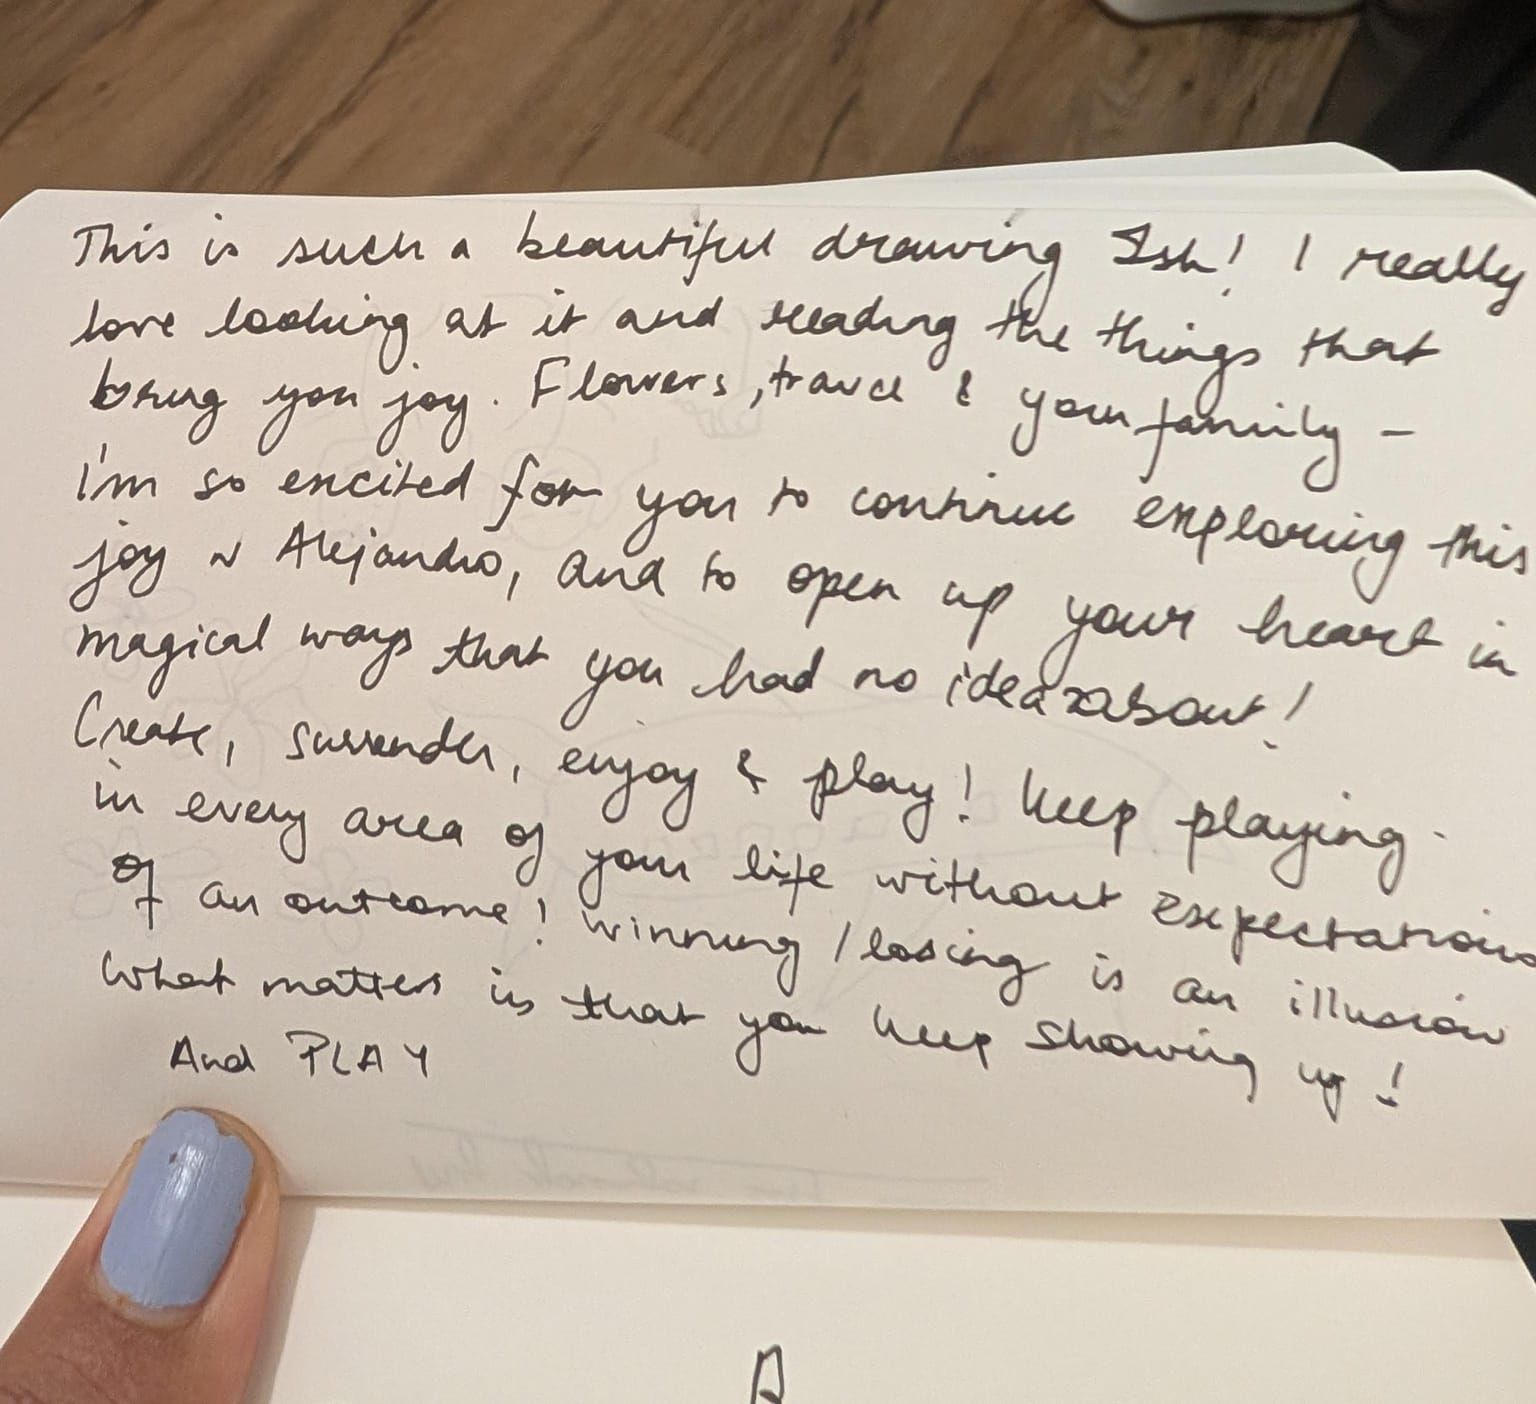 This is such a beautiful drawing Ish! I really
love looking at it and reading the things that
bring you joy. Flowers, travel & your family -
I'm so excited for you to continue exploring this
joy ~ Alejandro, and to open up your heart in
magical ways that you had no idea about!
Create, surrender, enjoy & play! Keep playing
in every area of your life without expectations
of an outcome! Winning / losing is an illusion
What matters is that you keep showing up!
And PLAY
A